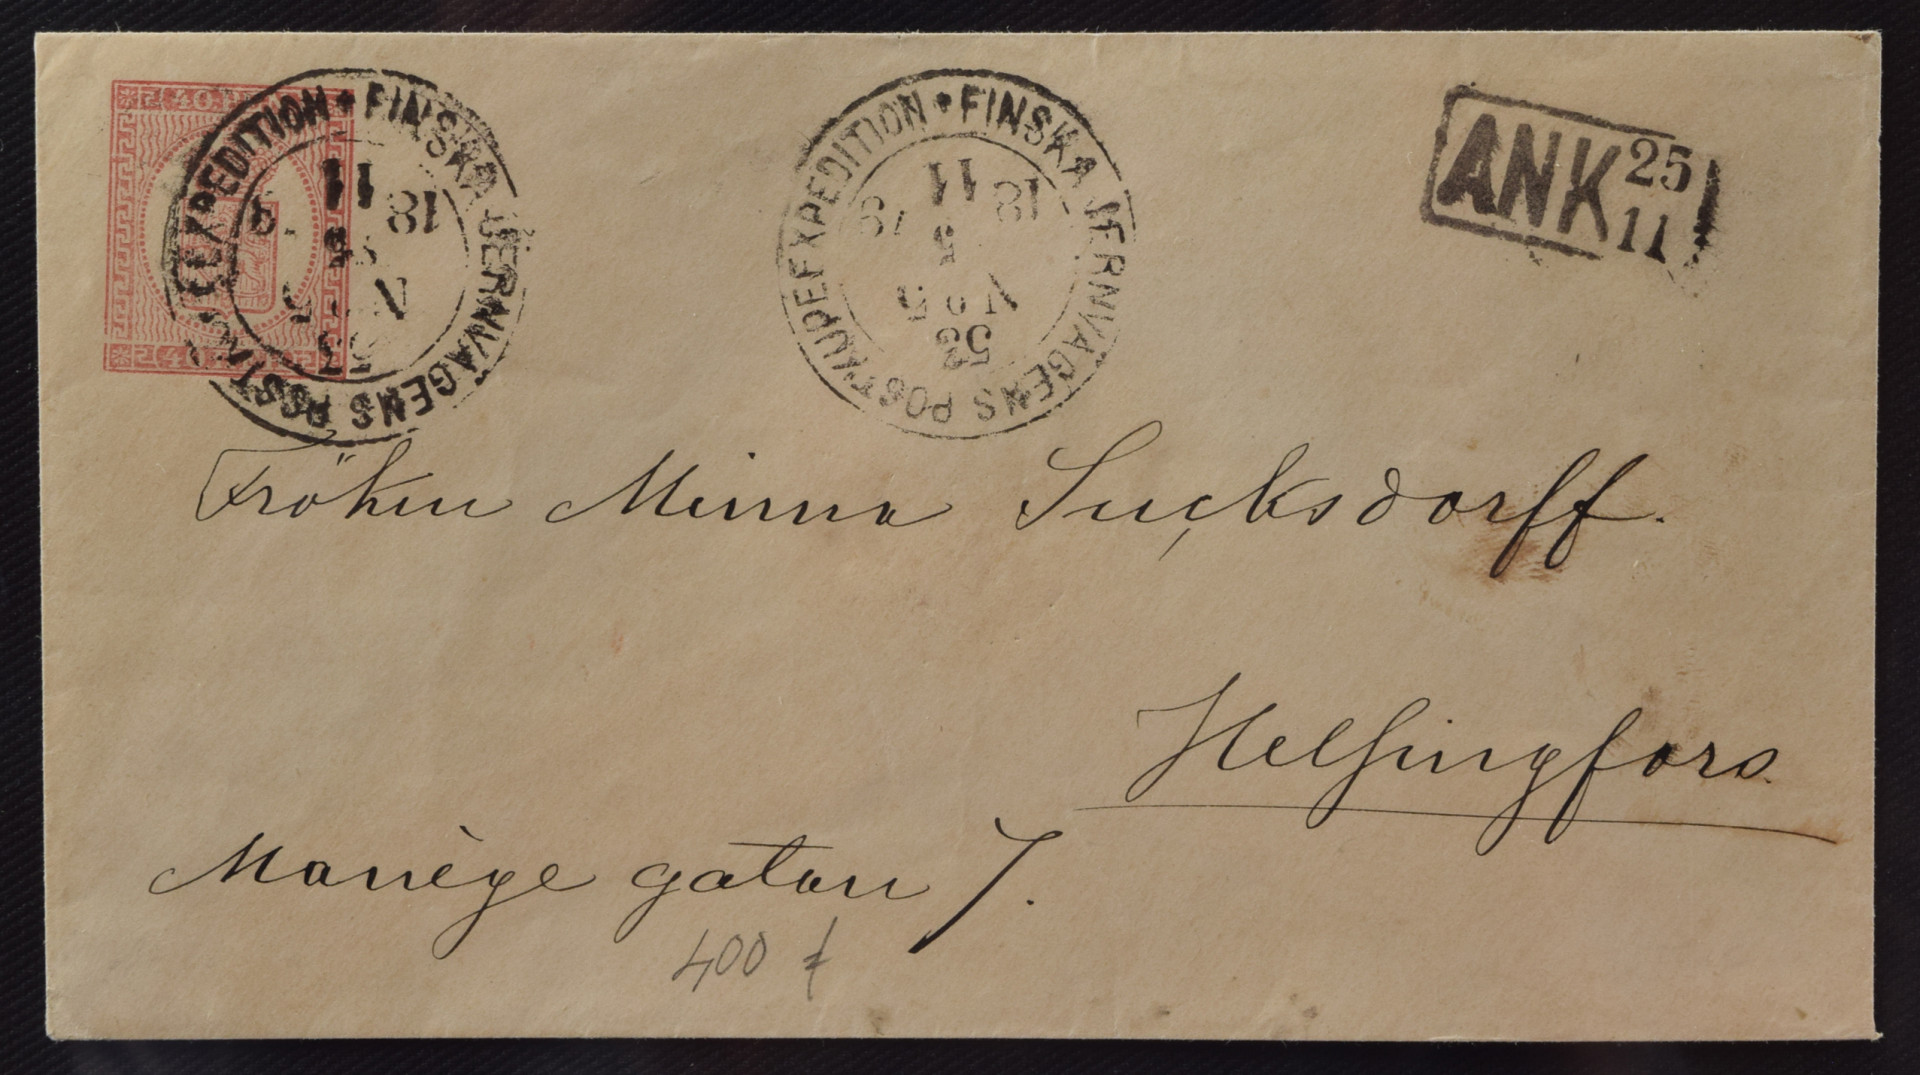 FINSKA JERNVÄGENS POSTKUPEEXPEDITION
18 11
FINSKA JERNVÄGENS POSTKUPEEXPEDITION
18 11
No 5
ANK 25 11
40
40
Fröken Minna Sucksdorff.
Helsingfors.
Manège gatan 7.
400